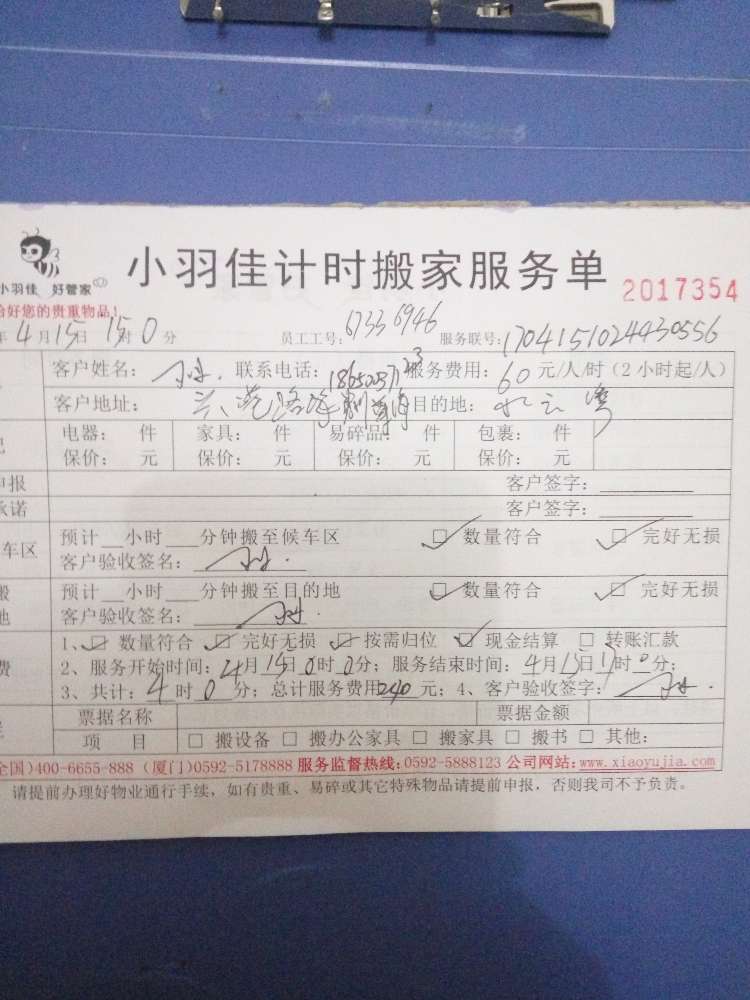 小羽佳 好管家
小羽佳计时搬家服务单
2017354
好您的贵重物品!
年4月15日15时0分 员工工号: 6733 6946 服务联号: 1704151024430556
客户姓名: 联系电话: 服务费用: 60元/人/时(2小时起/人)
客户地址: 兴港路 目的地: 水云湾
电器: 件 家具: 件 易碎品: 件 包裹: 件
保价: 元 保价: 元 保价: 元 保价: 元
申报 客户签字:
承诺 客户签字:
车区 预计__小时___分钟搬至候车区 ☑ 数量符合 ☑ 完好无损
客户验收签名:
预计__小时___分钟搬至目的地 ☑ 数量符合 ☑ 完好无损
客户验收签名:
1、☑ 数量符合 ☑ 完好无损 ☑ 按需归位 ☑ 现金结算 □ 转账汇款
费 2、服务开始时间: 4月15日 时0分; 服务结束时间: 4月15日17时0分;
3、共计: 4时0分; 总计服务费用240元; 4、客户验收签字:
票据名称 票据金额
项 目 □ 搬设备 □ 搬办公家具 □ 搬家具 □ 搬书 □ 其他:
全国)400-6655-888 (厦门)0592-5178888 服务监督热线:0592-5888123 公司网站:www.xiaoyujia.com
请提前办理好物业通行手续,如有贵重、易碎或其它特殊物品请提前申报,否则我司不予负责。